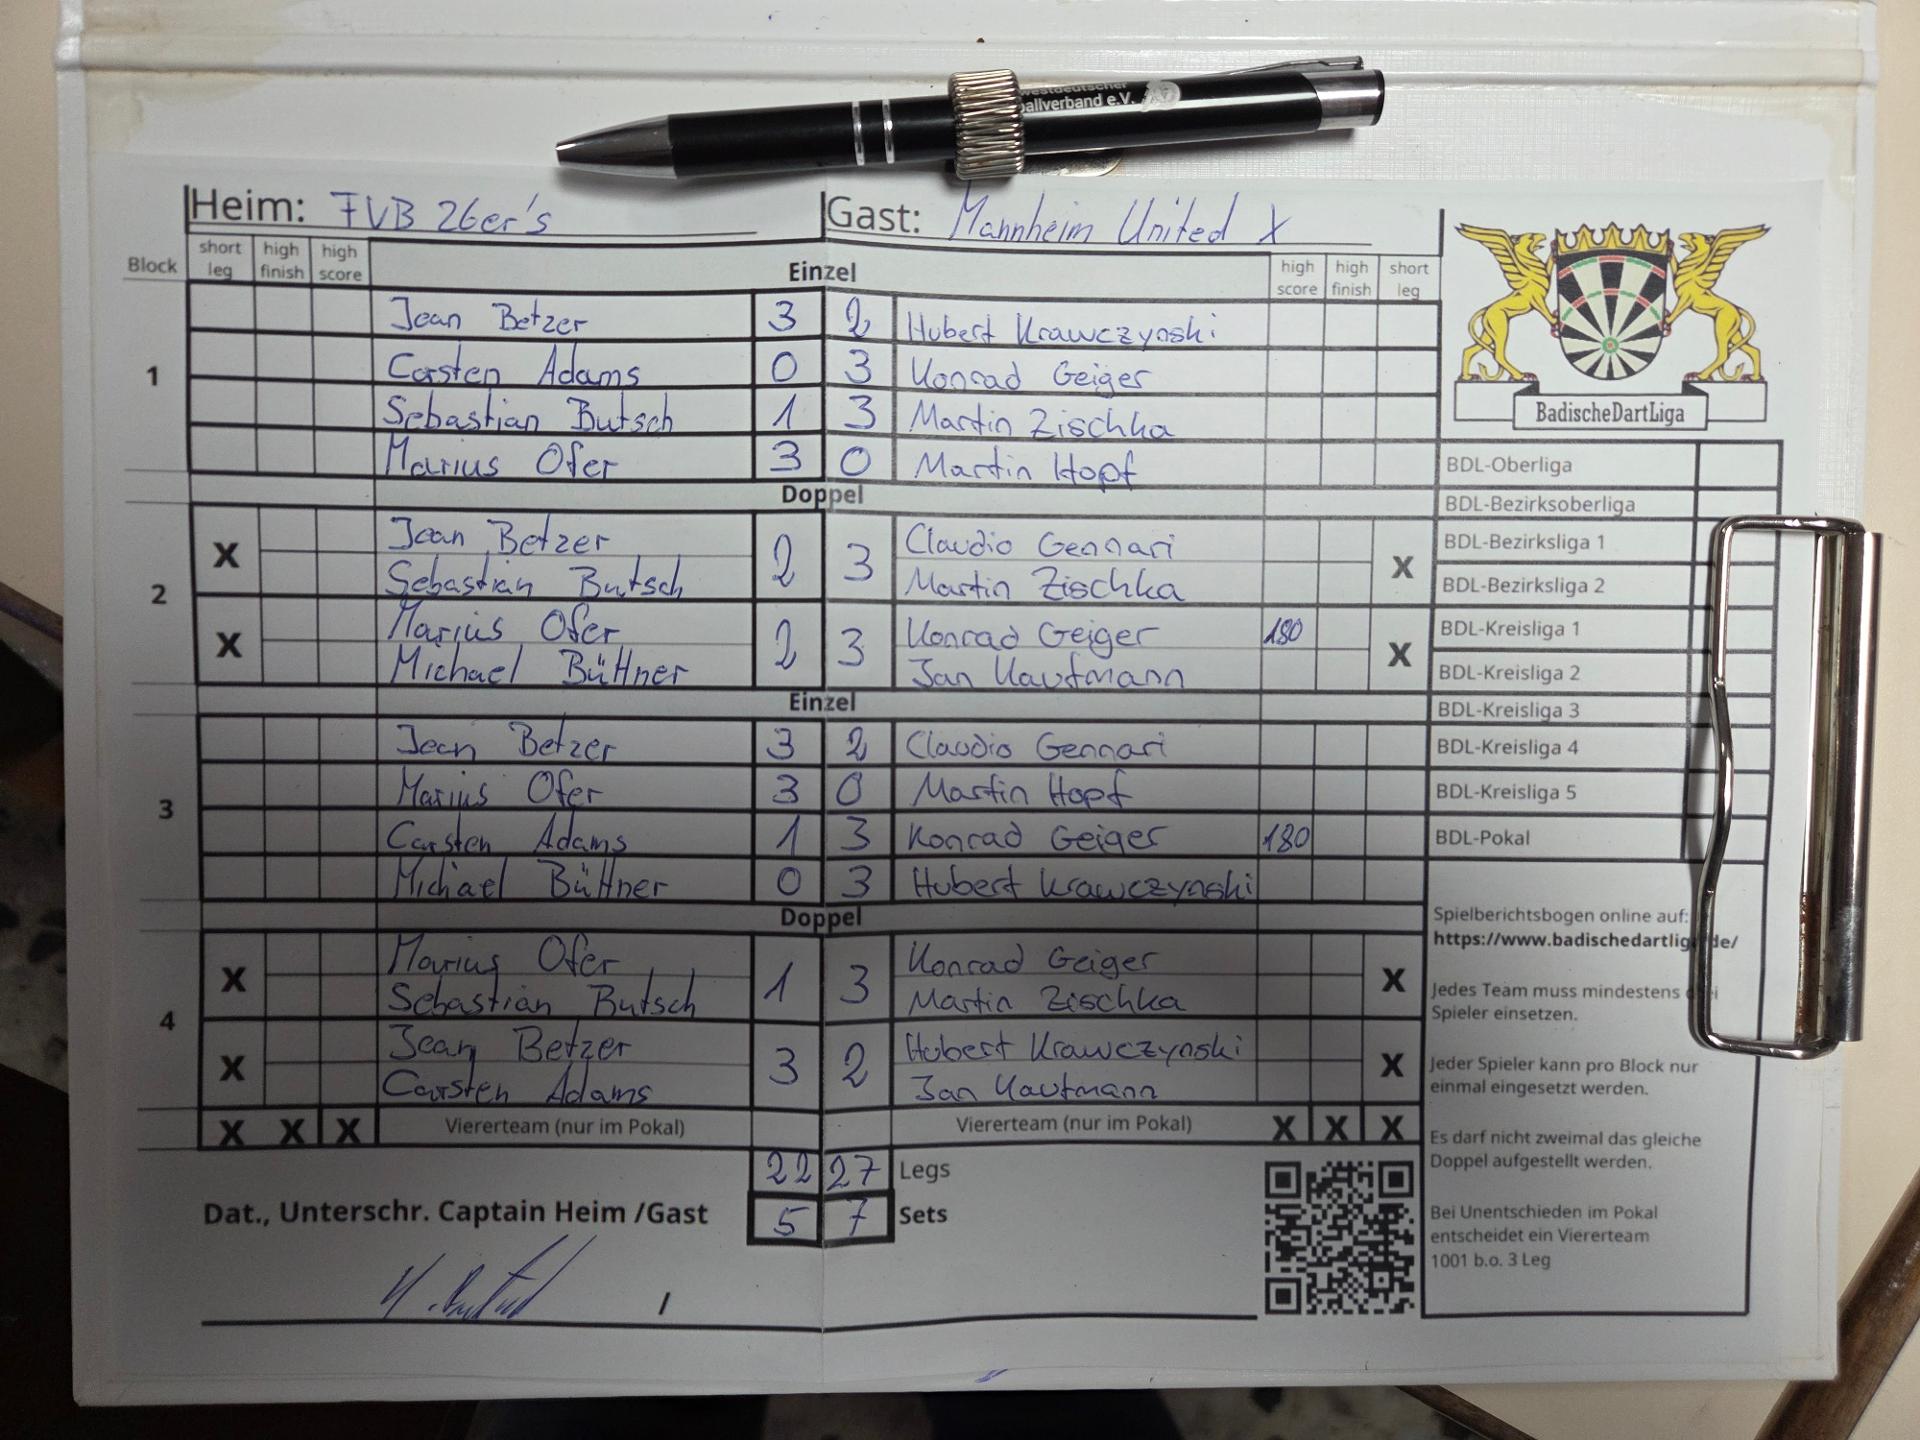 westdeutscher
ballverband e.V.
Heim: FVB 26er's Gast: Mannheim United X
Block short leg high finish high score Einzel high score high finish short leg
1
Jean Betzer 3 2 Hubert Krawczynski
Carsten Adams 0 3 Konrad Geiger
Sebastian Butsch 1 3 Martin Zischka
Marius Ofer 3 0 Martin Hopf
Doppel
2
X Jean Betzer 2 3 Claudio Gennari X
Sebastian Butsch Martin Zischka
X Marius Ofer 2 3 Konrad Geiger 180 X
Michael Büttner Jan Kaufmann
Einzel
3
Jean Betzer 3 2 Claudio Gennari
Marius Ofer 3 0 Martin Hopf
Carsten Adams 1 3 Konrad Geiger 180
Michael Büttner 0 3 Hubert Krawczynski
Doppel
4
X Marius Ofer 1 3 Konrad Geiger X
Sebastian Butsch Martin Zischka
X Jean Betzer 3 2 Hubert Krawczynski X
Carsten Adams Jan Kaufmann
X X X Viererteam (nur im Pokal) Viererteam (nur im Pokal) X X X
22 27 Legs
Dat., Unterschr. Captain Heim /Gast 5 7 Sets
/
BadischeDartLiga
BDL-Oberliga
BDL-Bezirksoberliga
BDL-Bezirksliga 1
BDL-Bezirksliga 2
BDL-Kreisliga 1
BDL-Kreisliga 2
BDL-Kreisliga 3
BDL-Kreisliga 4
BDL-Kreisliga 5
BDL-Pokal
Spielberichtsbogen online auf:
https://www.badischedartliga.de/
Jedes Team muss mindestens drei
Spieler einsetzen.
Jeder Spieler kann pro Block nur
einmal eingesetzt werden.
Es darf nicht zweimal das gleiche
Doppel aufgestellt werden.
Bei Unentschieden im Pokal
entscheidet ein Viererteam
1001 b.o. 3 Leg